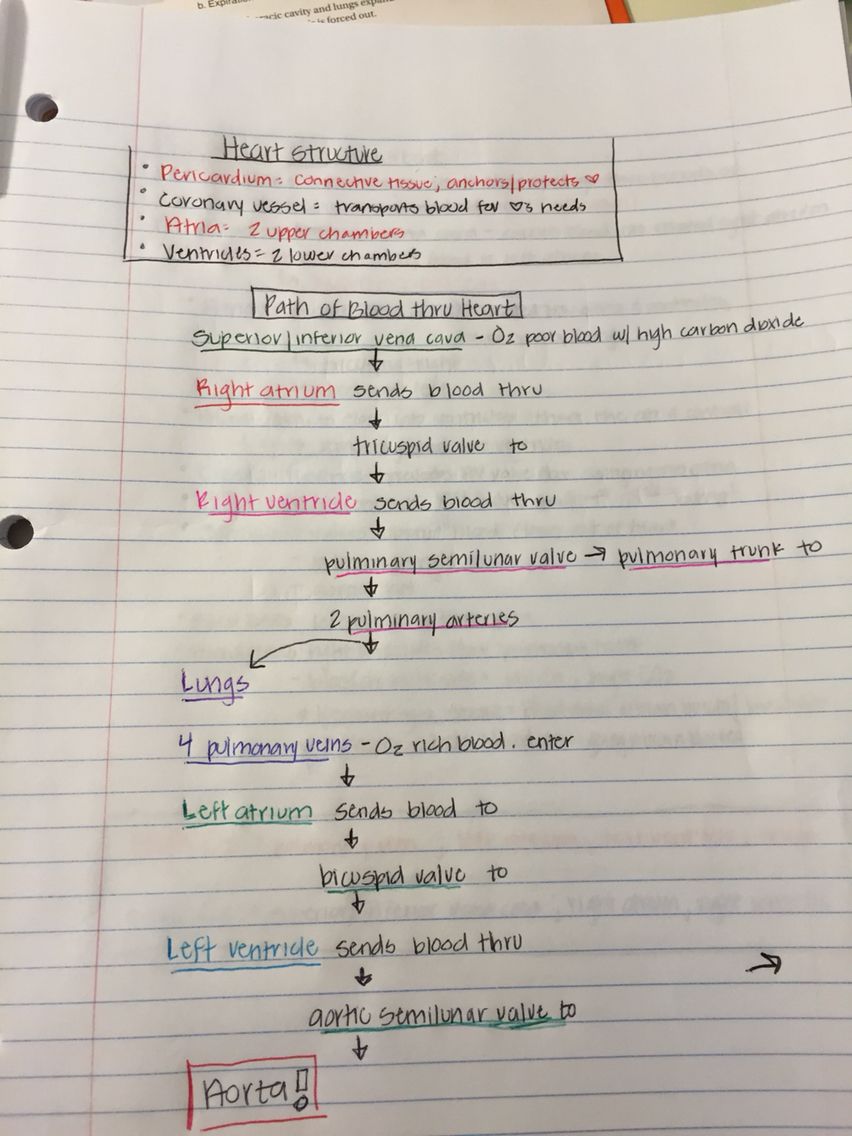 b. Expiration
racic cavity and lungs expa
is forced out.
Heart structure
• Pericardium = connective tissue, anchors/protects ♡
• Coronary vessel = transports blood for ♡s needs
• Atria = 2 upper chambers
• Ventricles = 2 lower chambers
Path of Blood thru Heart
Superior/inferior vena cava - O2 poor blood w/ high carbon dioxide
↓
Right atrium sends blood thru
↓
tricuspid valve to
↓
Right ventricle sends blood thru
↓
pulminary semilunar valve → pulmonary trunk to
↓
2 pulminary arteries
↓
Lungs
4 pulmonary veins - O2 rich blood. enter
↓
Left atrium sends blood to
↓
bicuspid valve to
↓
Left ventricle sends blood thru
→
↓
aortic semilunar valve to
↓
Aorta!